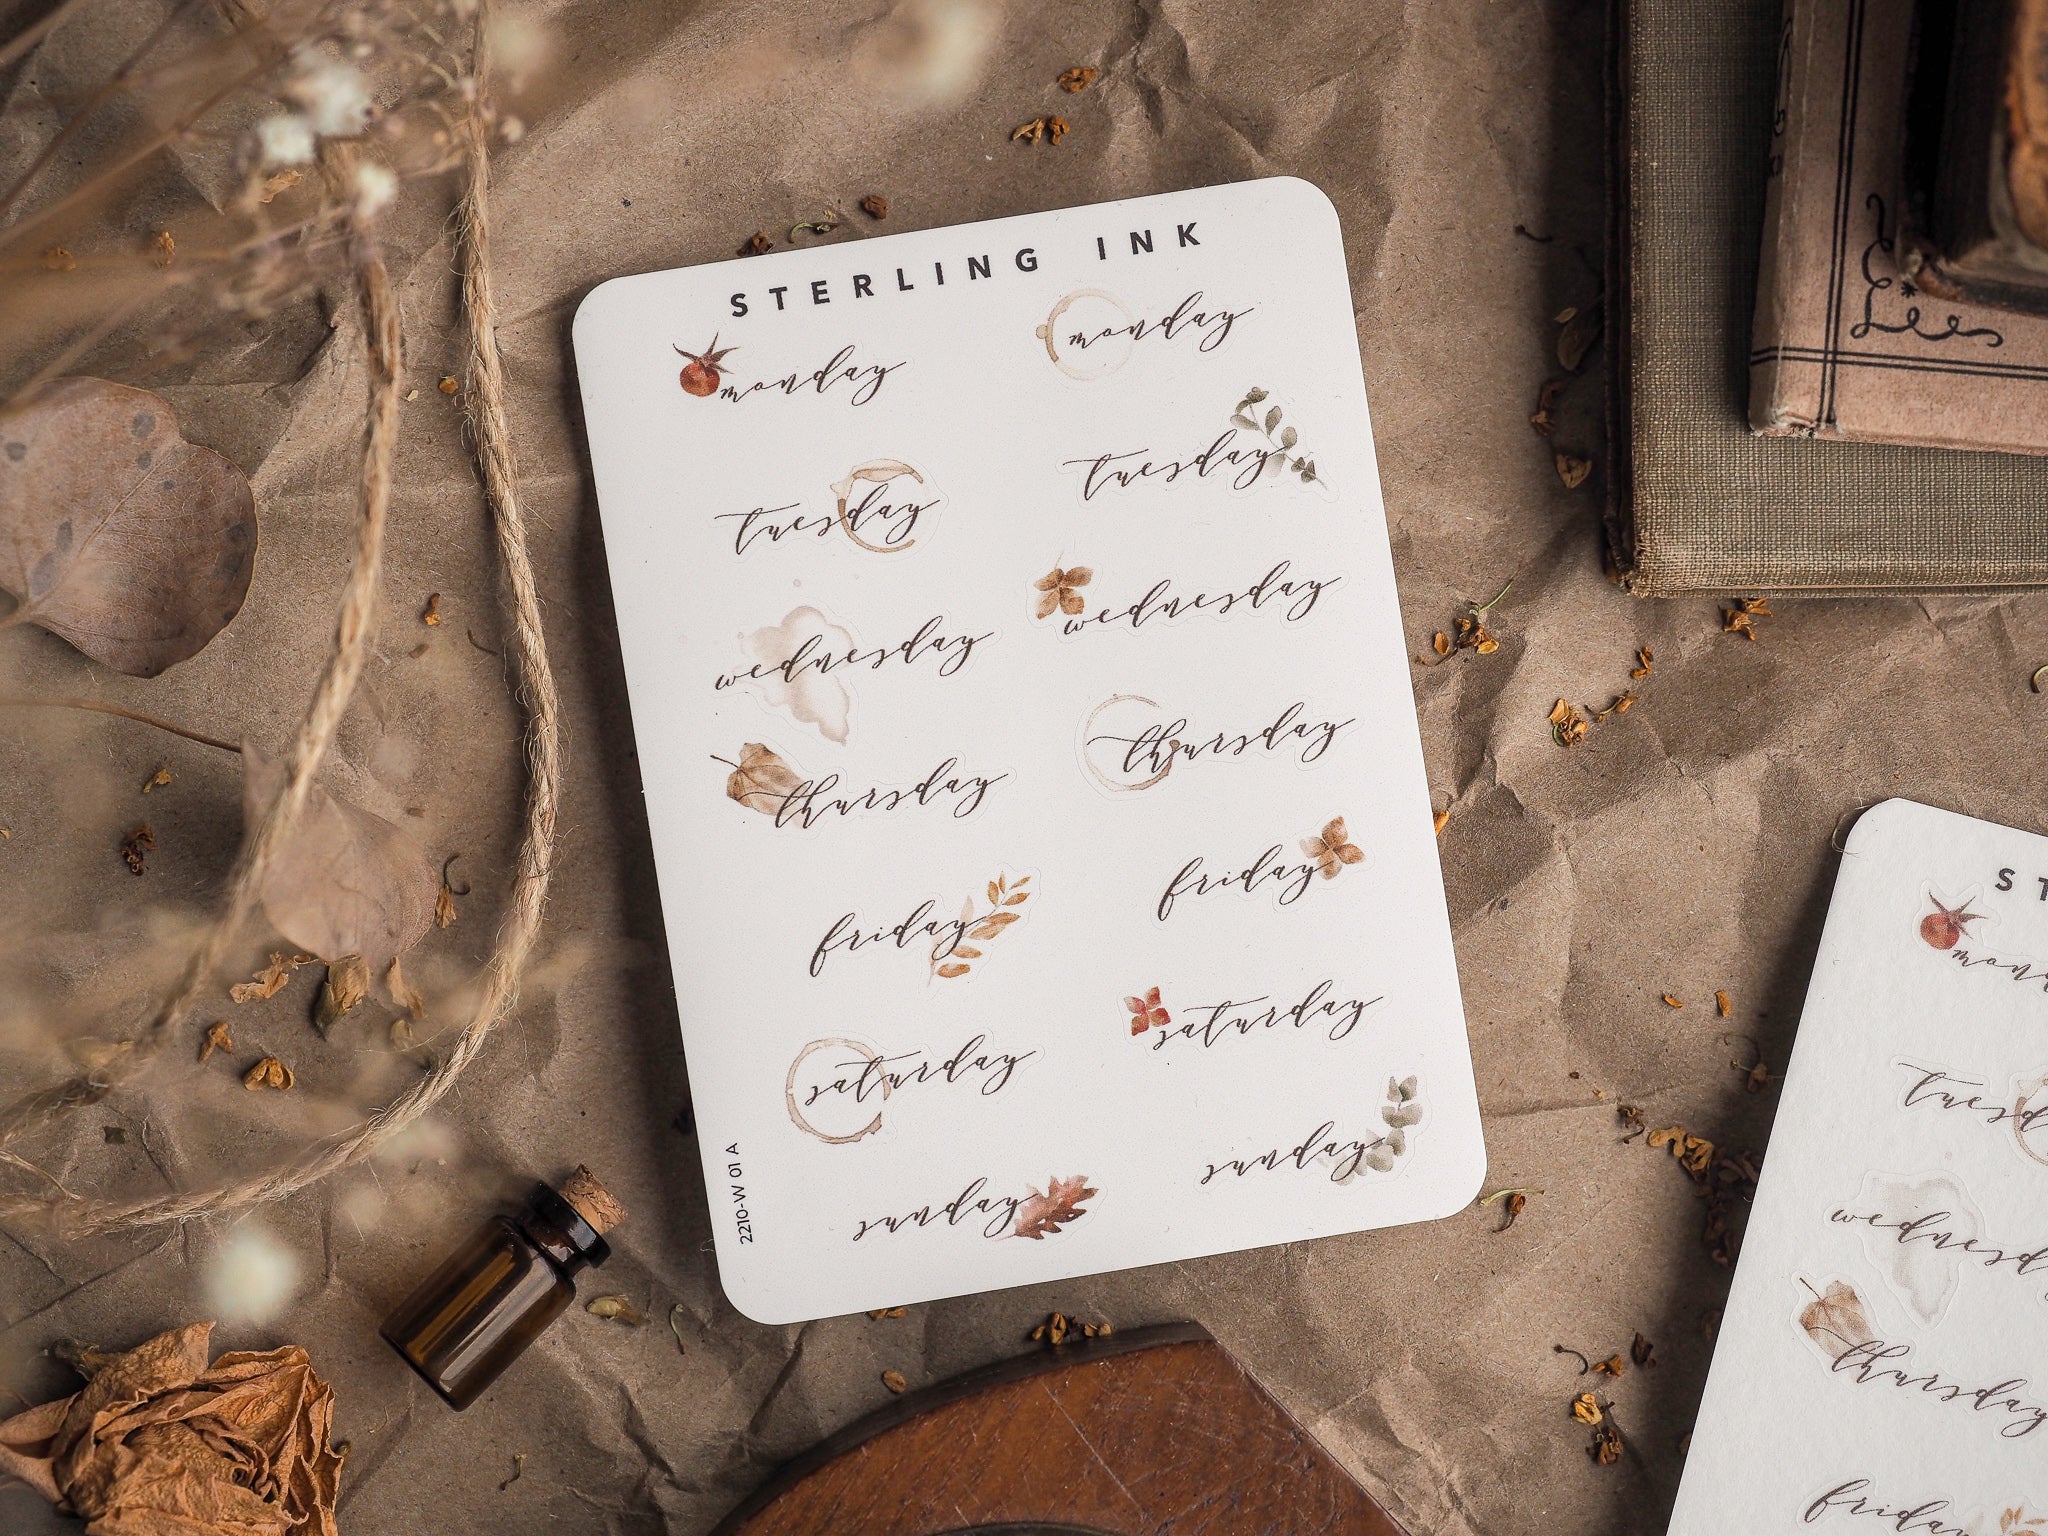 STERLING INK
monday
monday
tuesday
tuesday
wednesday
wednesday
thursday
thursday
friday
friday
saturday
saturday
sunday
sunday
2210-W 01 A
thursday
friday